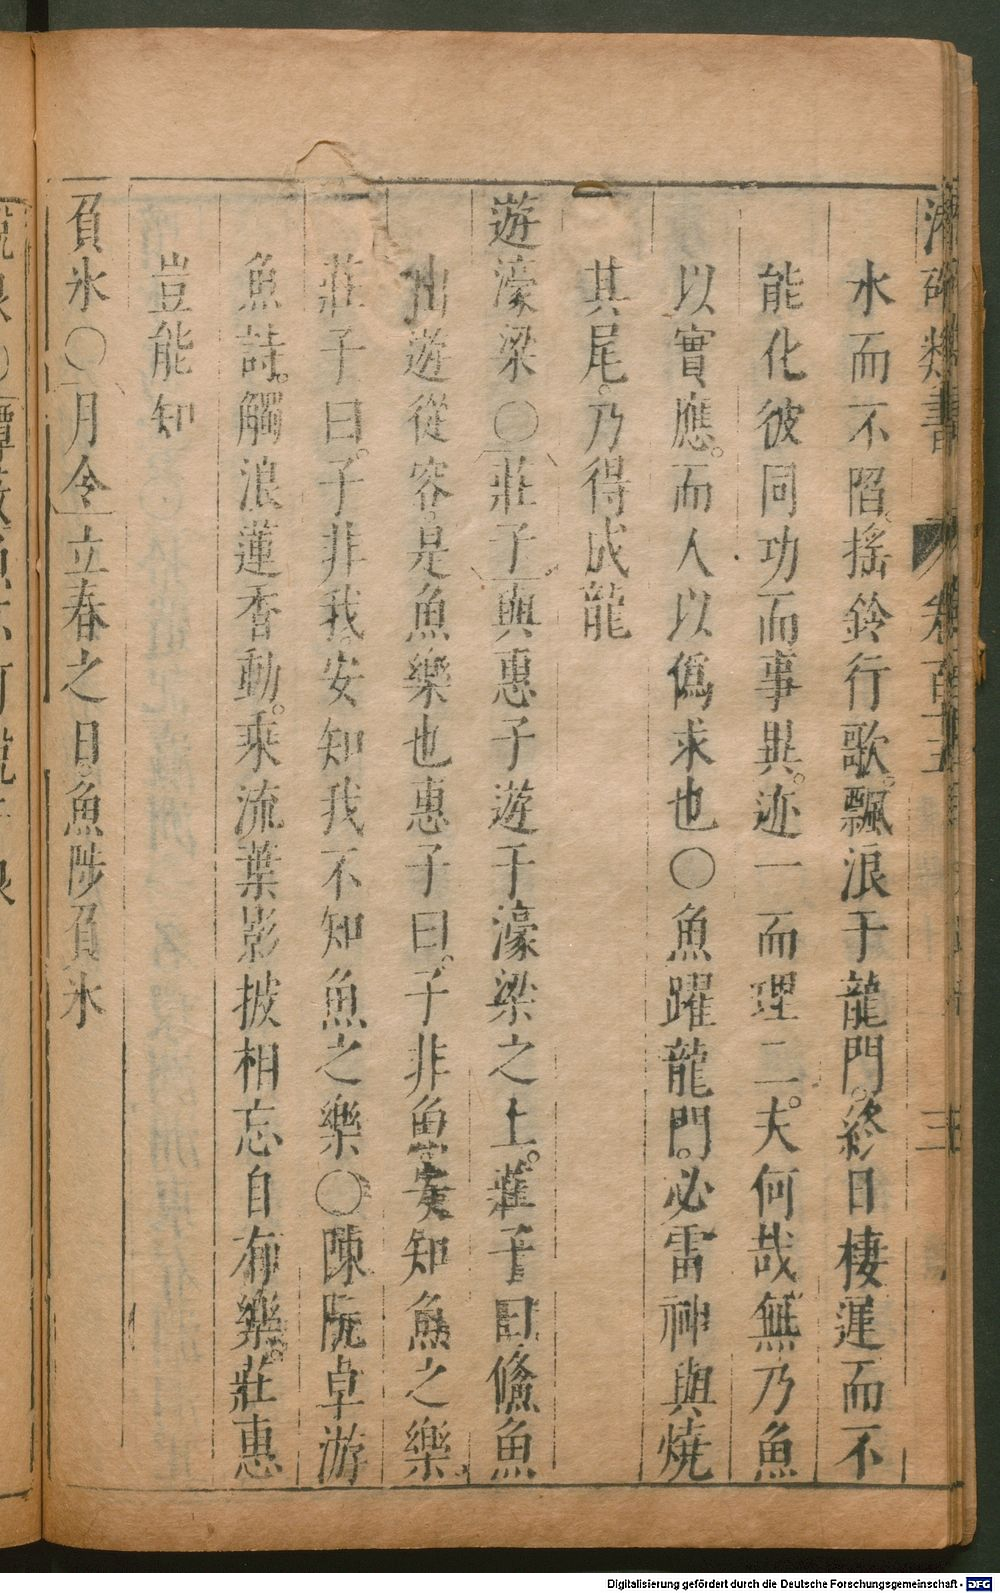 水而不陷搖鈴行歌飄浪于龍門終日棲遲而不
能化彼同功而事異迹一而理二夫何哉無乃魚
以實應而人以僞求也○魚躍龍門必雷神與燒
其尾乃得成龍
遊濠梁○莊子與惠子遊于濠梁之上莊子曰儵魚
出遊從容是魚樂也惠子曰子非魚安知魚之樂
莊子曰子非我安知我不知魚之樂○陳阮卓游
魚詩觸浪蓮香動乘流葉影披相忘自有樂莊惠
豈能知
負氷○月令立春之日魚陟負氷
Digitalisierung gefördert durch die Deutsche Forschungsgemeinschaft - DFG